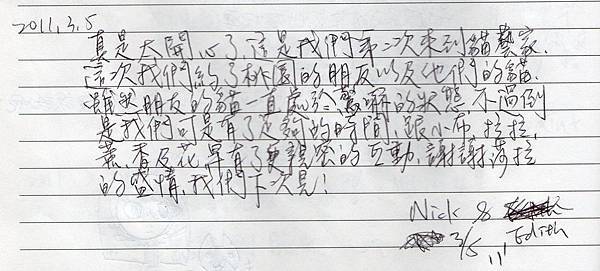 2011.3.5
真是太開心了這是我們第二次來到貓藝家.
這次我們約了桃園的朋友以及他們的貓.
雖然朋友的貓一直處於 的狀態不過倒
是我們可是有了足夠的時間,跟小布,拉拉,
薰香及花 有了更親密的互動,謝謝莎拉
的盛情,我們下次見!
Nick &
3/5 Edith